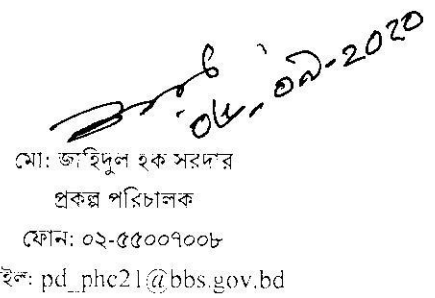 মো: জাহিদুল হক সরদার
প্রকল্প পরিচালক
ফোন: ০২-৫৫০০৭০০৮
ইল: pd_phc21@bbs.gov.bd